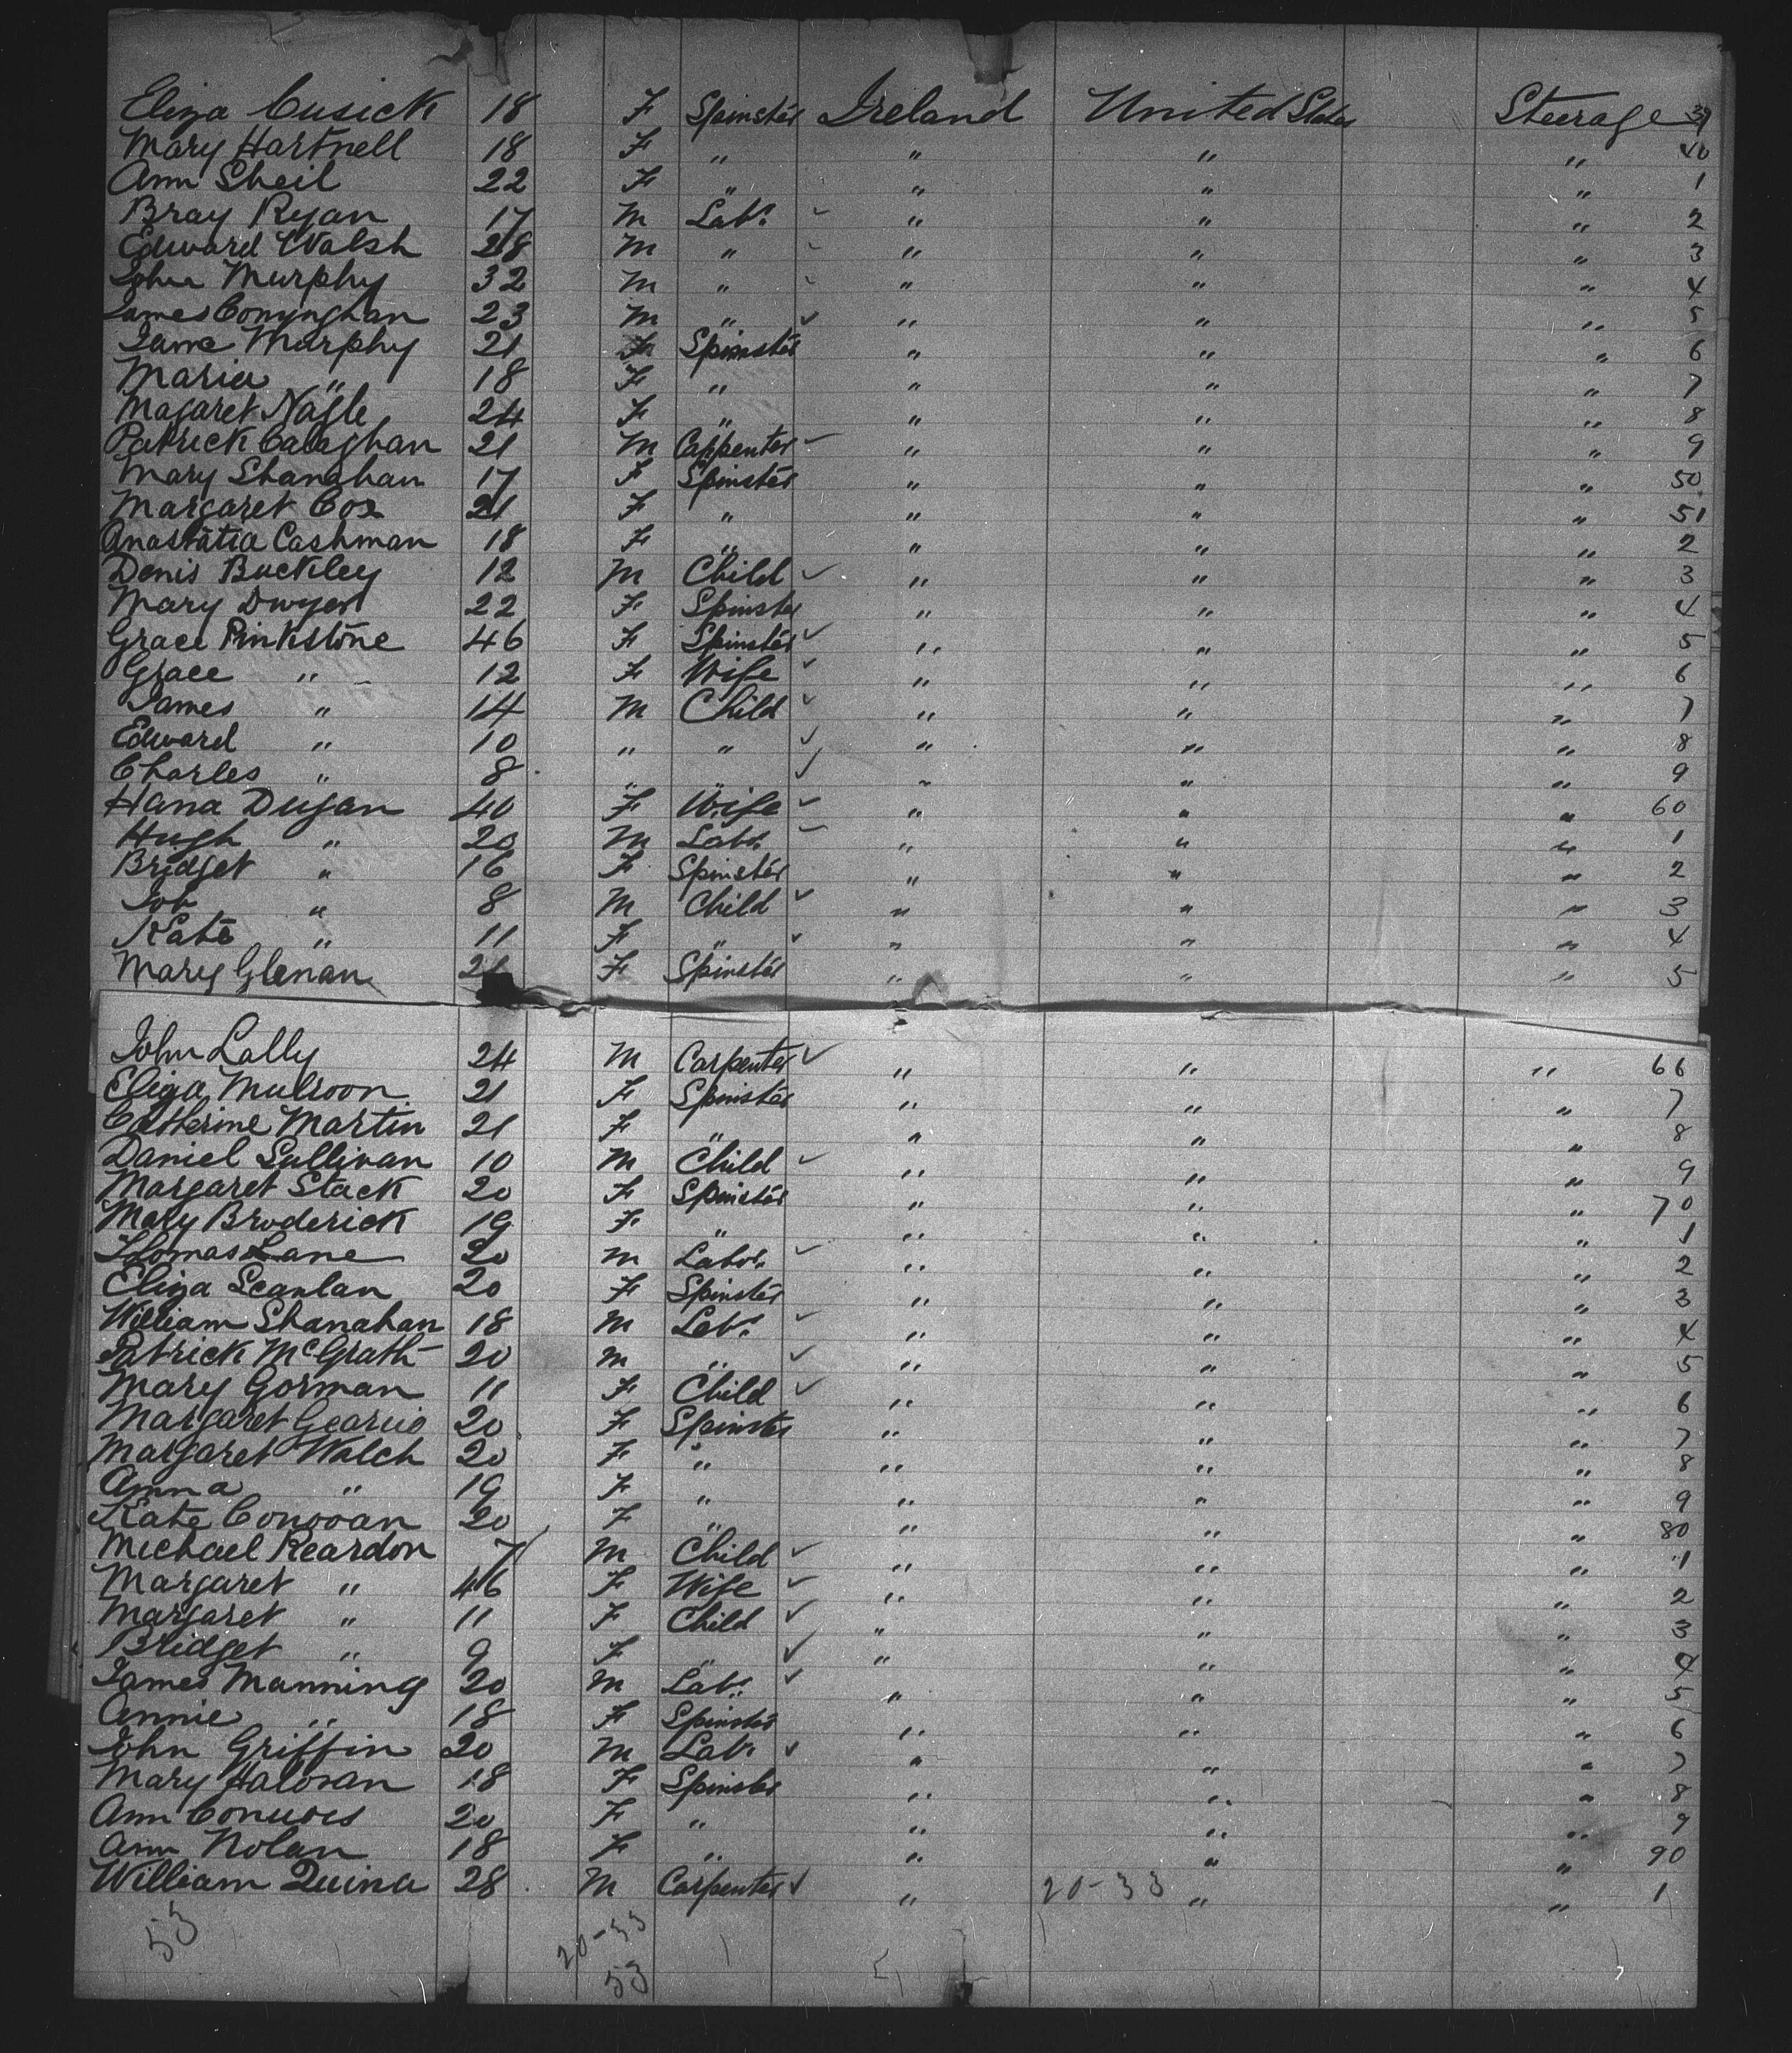 Eliza Cusick 18 F Spinster Ireland United States Steerage 39
Mary Hartnell 18 F " " " " 40
Ann Sheil 22 F " " " " 1
Bray Ryan 17 M Labr. " " " 2
Edward Walsh 28 M " " " " 3
John Murphy 32 M " " " " 4
James Conynghan 23 M " ✓ " " " 5
Jane Murphy 21 F Spinster " " " 6
Maria " 18 F " " " " 7
Magaret Nagle 24 F " " " " 8
Patrick Calaghan 21 M Cappenter " " " 9
Mary Shanahan 17 F Spinster " " " 50
Margaret Cox 21 F " " " " 51
Anastatia Cashman 18 F " " " " 2
Denis Buckley 12 M Child ✓ " " " 3
Mary Dwyer 22 F Spinster " " " 4
Grace Pinkstone 46 F Spinster ✓ " " " 5
Grace " 12 F Wife ✓ " " " 6
James " 14 M Child ✓ " " " 7
Edward " 10 " " ✓ " " " 8
Charles " 8 " " ✓ " " " 9
Hana Dugan 40 F Wife ✓ " " " 60
Hugh " 20 M Labr. " " " 1
Bridget " 16 F Spinster " " " 2
Job " 8 M Child ✓ " " " 3
Kate " 11 F " ✓ " " " 4
Mary Glenan 21 F Spinster " " " 5
John Lally 24 M Carpenter ✓ " " " 66
Eliza Mulroon 21 F Spinster " " " 7
Catherine Martin 21 F " " " " 8
Daniel Sullivan 10 M Child ✓ " " " 9
Margaret Stack 20 F Spinster " " " 70
Mary Broderick 19 F " " " " 1
Thomas Lane 20 M Labor. ✓ " " " 2
Eliza Scanlan 20 F Spinster " " " 3
William Shanahan 18 M Labr. ✓ " " " 4
Patrick McGrath 20 M " ✓ " " " 5
Mary Gorman 11 F Child ✓ " " " 6
Margaret 20 F Spinster " " " 7
Margaret Walch 20 F " " " " 8
Anna " 19 F " " " " 9
Kate Conovan 20 F " " " " 80
Michael Reardon 7 M Child ✓ " " " 1
Margaret " 46 F Wife ✓ " " " 2
Margaret " 11 F Child ✓ " " " 3
Bridget " 9 F " ✓ " " " 4
James Manning 20 M Labr. ✓ " " " 5
Annie " 18 F Spinster " " " 6
John Griffin 20 M Labr. ✓ " " " 7
Mary Haloran 18 F Spinster " " " 8
Ann Connors 20 F " " " " 9
Ann Nolan 18 F " " " " 90
William Quina 28 M Carpenter ✓ " 20-33 " " 1
53 20-33
53